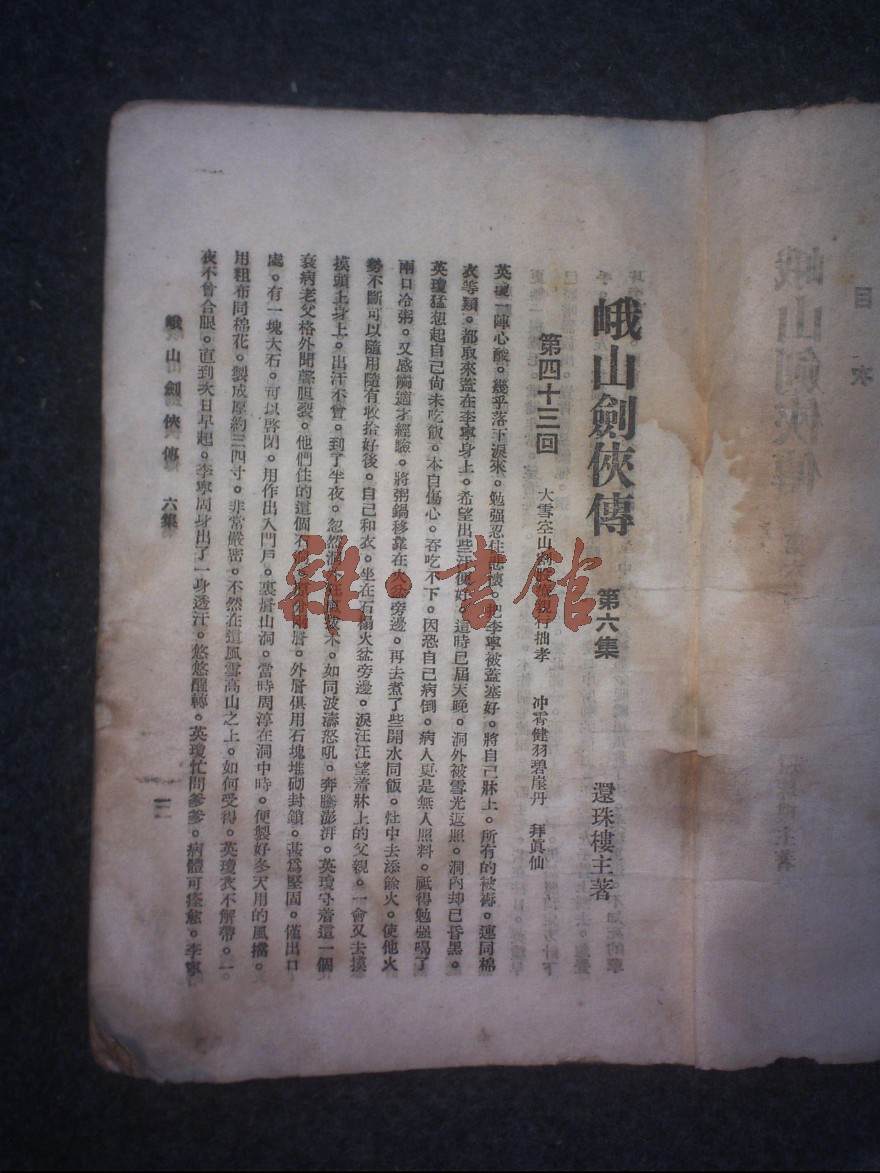 峨山劍俠傳 第六集 還珠樓主著
第四十三回 大雪空山 割股療親行拙孝 冲霄健羽碧崖丹 拜眞仙
英瓊一陣心酸。幾乎落下淚來。勉强忍住悲懷。把李寧被蓋塞好。將自己牀上。所有的被褥。連同棉
衣等類。都取來蓋在李寧身上。希望出些汗便好。這時已屆天晚。洞外被雪光返照。洞內却已昏黑。
英瓊猛想起自己尙未吃飯。本自傷心。吞吃不下。因恐自己病倒。病人更是無人照料。祗得勉强喝了
兩口冷粥。又感觸適才經驗。將粥鍋移靠在火盆旁邊。再去煮了些開水同飯。灶中去添餘火。使他火
勢不斷可以隨用隨有收拾好後。自己和衣。坐在石榻火盆旁邊。淚汪汪望着牀上的父親。一會又去摸
摸頭上身上。出汗不曾。到了半夜。忽然洞 木。如同波濤怒吼。奔騰澎湃。英瓊守着這一個
衰病老父格外聞聲膽裂。他們住的這個石洞 兩層。外層俱用石塊堆砌封鎖。甚爲堅固。僅出口
處。有一塊大石。可以啓閉。用作出入門戶。裏層山洞。當時周淳在洞中時。便製好冬天用的風擋。
用粗布同棉花。製成厚約三四寸。非常嚴密。不然在這風雪高山之上。如何受得。英瓊衣不解帶。一
夜不曾合眼。直到次日早起。李寧周身出了一身透汗。悠悠醒轉。英瓊忙問爹爹。病體可痊愈。李寧
峨山劍俠傳 六集 一
目次
雜·書館